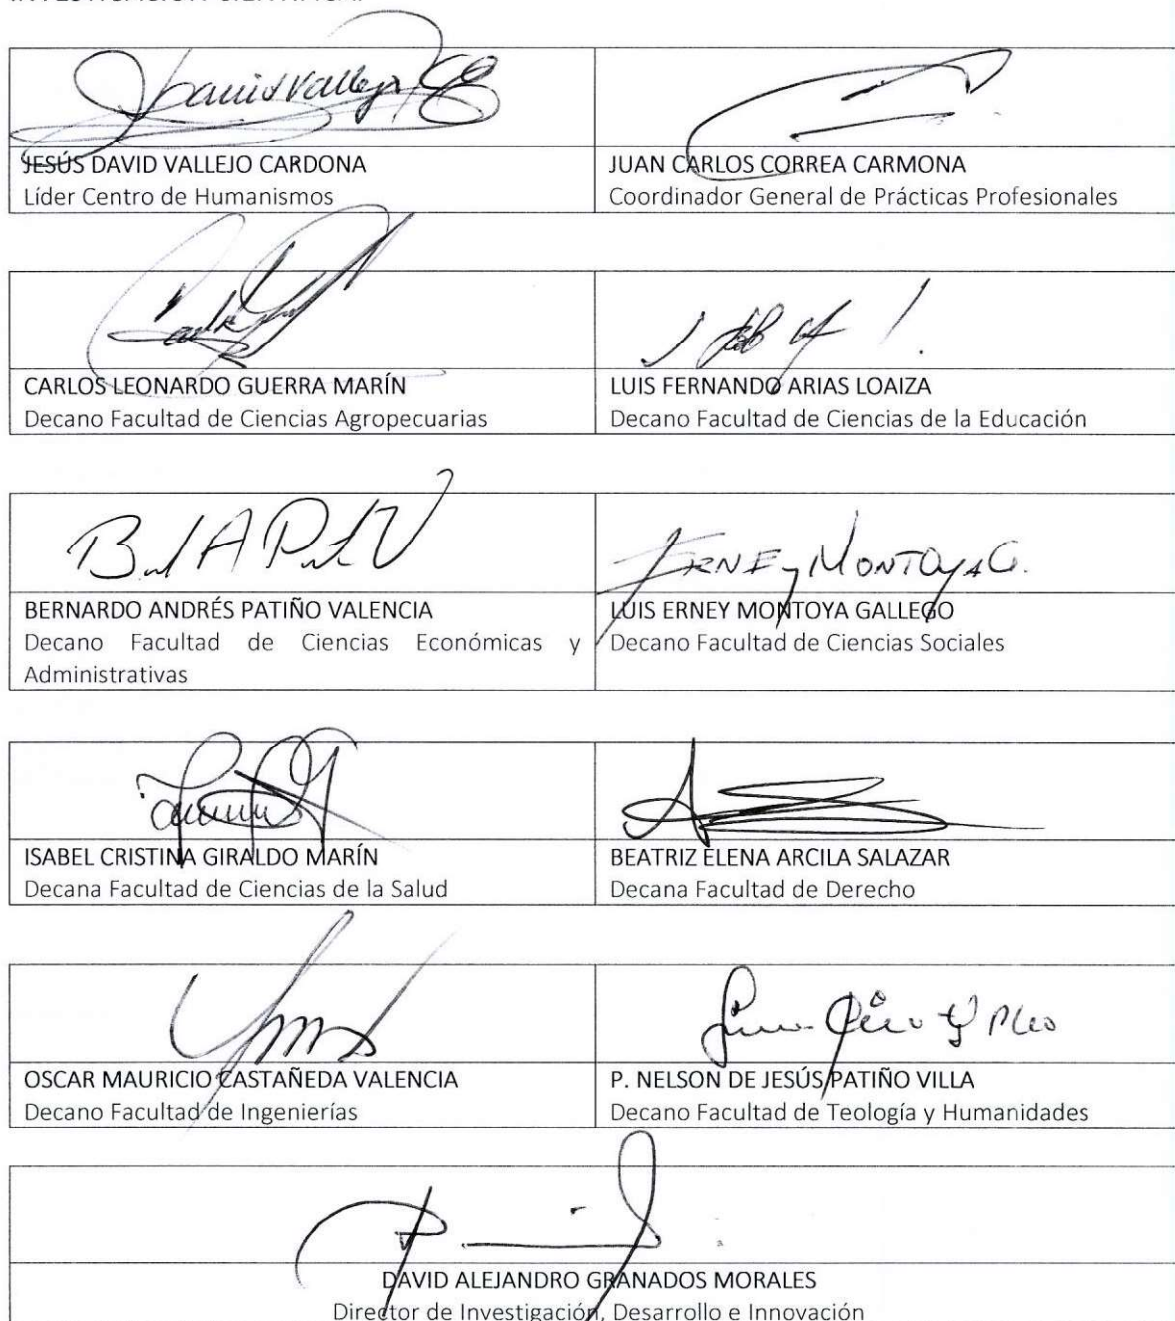 JESÚS DAVID VALLEJO CARDONA
Líder Centro de Humanismos
JUAN CARLOS CORREA CARMONA
Coordinador General de Prácticas Profesionales
CARLOS LEONARDO GUERRA MARÍN
Decano Facultad de Ciencias Agropecuarias
LUIS FERNANDO ARIAS LOAIZA
Decano Facultad de Ciencias de la Educación
BERNARDO ANDRÉS PATIÑO VALENCIA
Decano Facultad de Ciencias Económicas y
Administrativas
ERNEY MONTOYA G.
LUIS ERNEY MONTOYA GALLEGO
Decano Facultad de Ciencias Sociales
ISABEL CRISTINA GIRALDO MARÍN
Decana Facultad de Ciencias de la Salud
BEATRIZ ELENA ARCILA SALAZAR
Decana Facultad de Derecho
OSCAR MAURICIO CASTAÑEDA VALENCIA
Decano Facultad de Ingenierías
P. NELSON DE JESÚS PATIÑO VILLA
Decano Facultad de Teología y Humanidades
DAVID ALEJANDRO GRANADOS MORALES
Director de Investigación, Desarrollo e Innovación